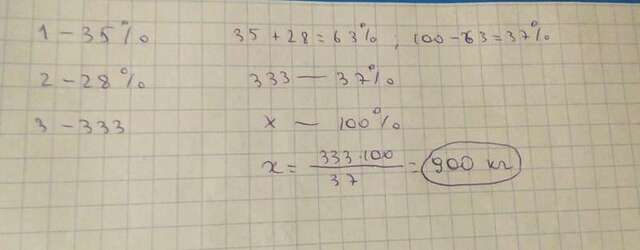 1 – 35%
35 + 28 = 63% ; 100 – 63 = 37%
2 – 28%
333 — 37%
3 – 333
x — 100%
x = 333·100 / 37 = 900 кг